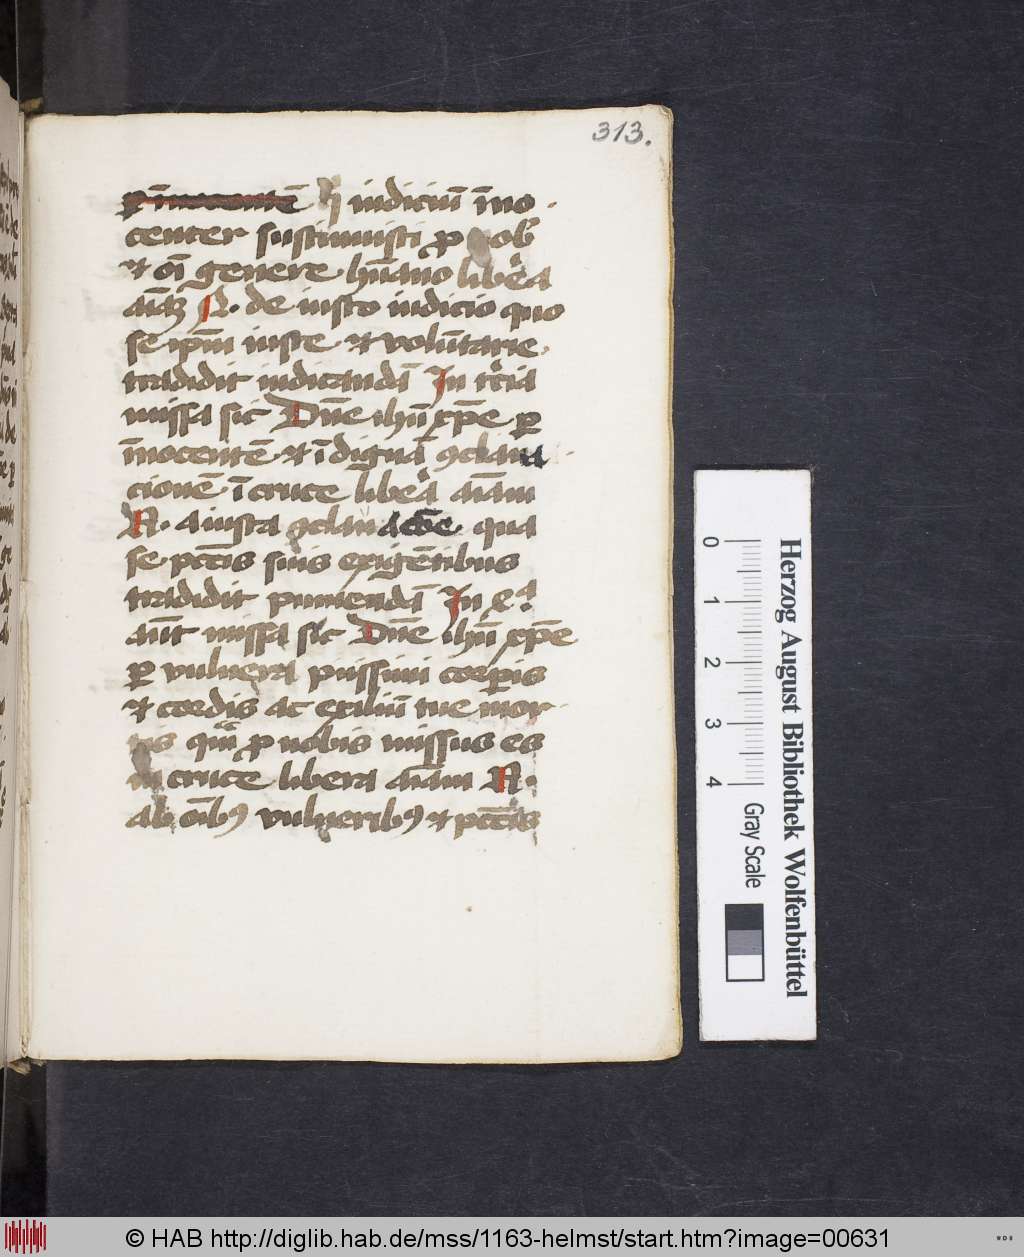 313.
iudiciū īno
center sustinuisti ꝓ nob
et oī genere hūano liba
aīaꝫ R. de iusto iudicio quo
se ipm̄ iuste et volūtarie
tradidit iudicandā In tcia
missa sic Dn̄e ihū xp̄e ꝑ
īnocentē et īdignā ꝯclaua
cionē ī cruce liba aīam
R. a iusta ꝯclauacōe qua
se pctīs suis exigētibus
tradidit puniendā In
aūt missa sic Dn̄e ihū xp̄e
ꝑ vulnera piissimi corꝑis
et cordis ac exiliū tue mor
tis ꝓ nobis missus es
in cruce libera aīam R.
ab oībꝰ vulneribꝰ et pctīs
0 1 2 3 4
Herzog August Bibliothek Wolfenbüttel
Gray Scale
© HAB http://diglib.hab.de/mss/1163-helmst/start.htm?image=00631